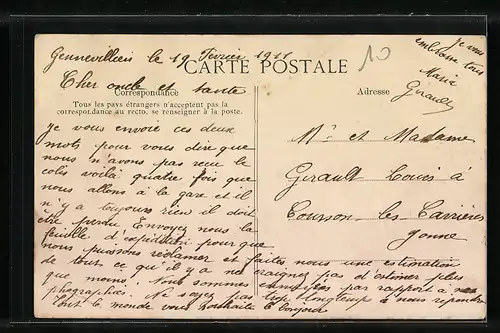 Gennevilliers le 19 Février 1911
CARTE POSTALE
10
je vous
embrasse tous
Marie
Girault
Cher oncle et tante
Correspondance
Tous les pays étrangers n'acceptent pas la
correspondance au recto, se renseigner à la poste.
Adresse
je vous envoie ces deux
mots pour vous dire que
nous n'avons pas reçu le
colis voilà quatre fois que
nous allons à la gare et il
n'y a toujours rien il doit
être perdu Envoyez nous la
feuille d'expédition pour que
nous puissons réclamer et faites nous une estimation
de tout ce qu'il y a ne craignez pas d'estimer plus
que moins. Nous sommes par rapport à nos
phographies. Ne soyez pas trop longtemps à nous répondre
Tout le monde vous souhaite le bonjour
Mr et Madame
Girault Louis à
Courson-les-Carrières
Yonne